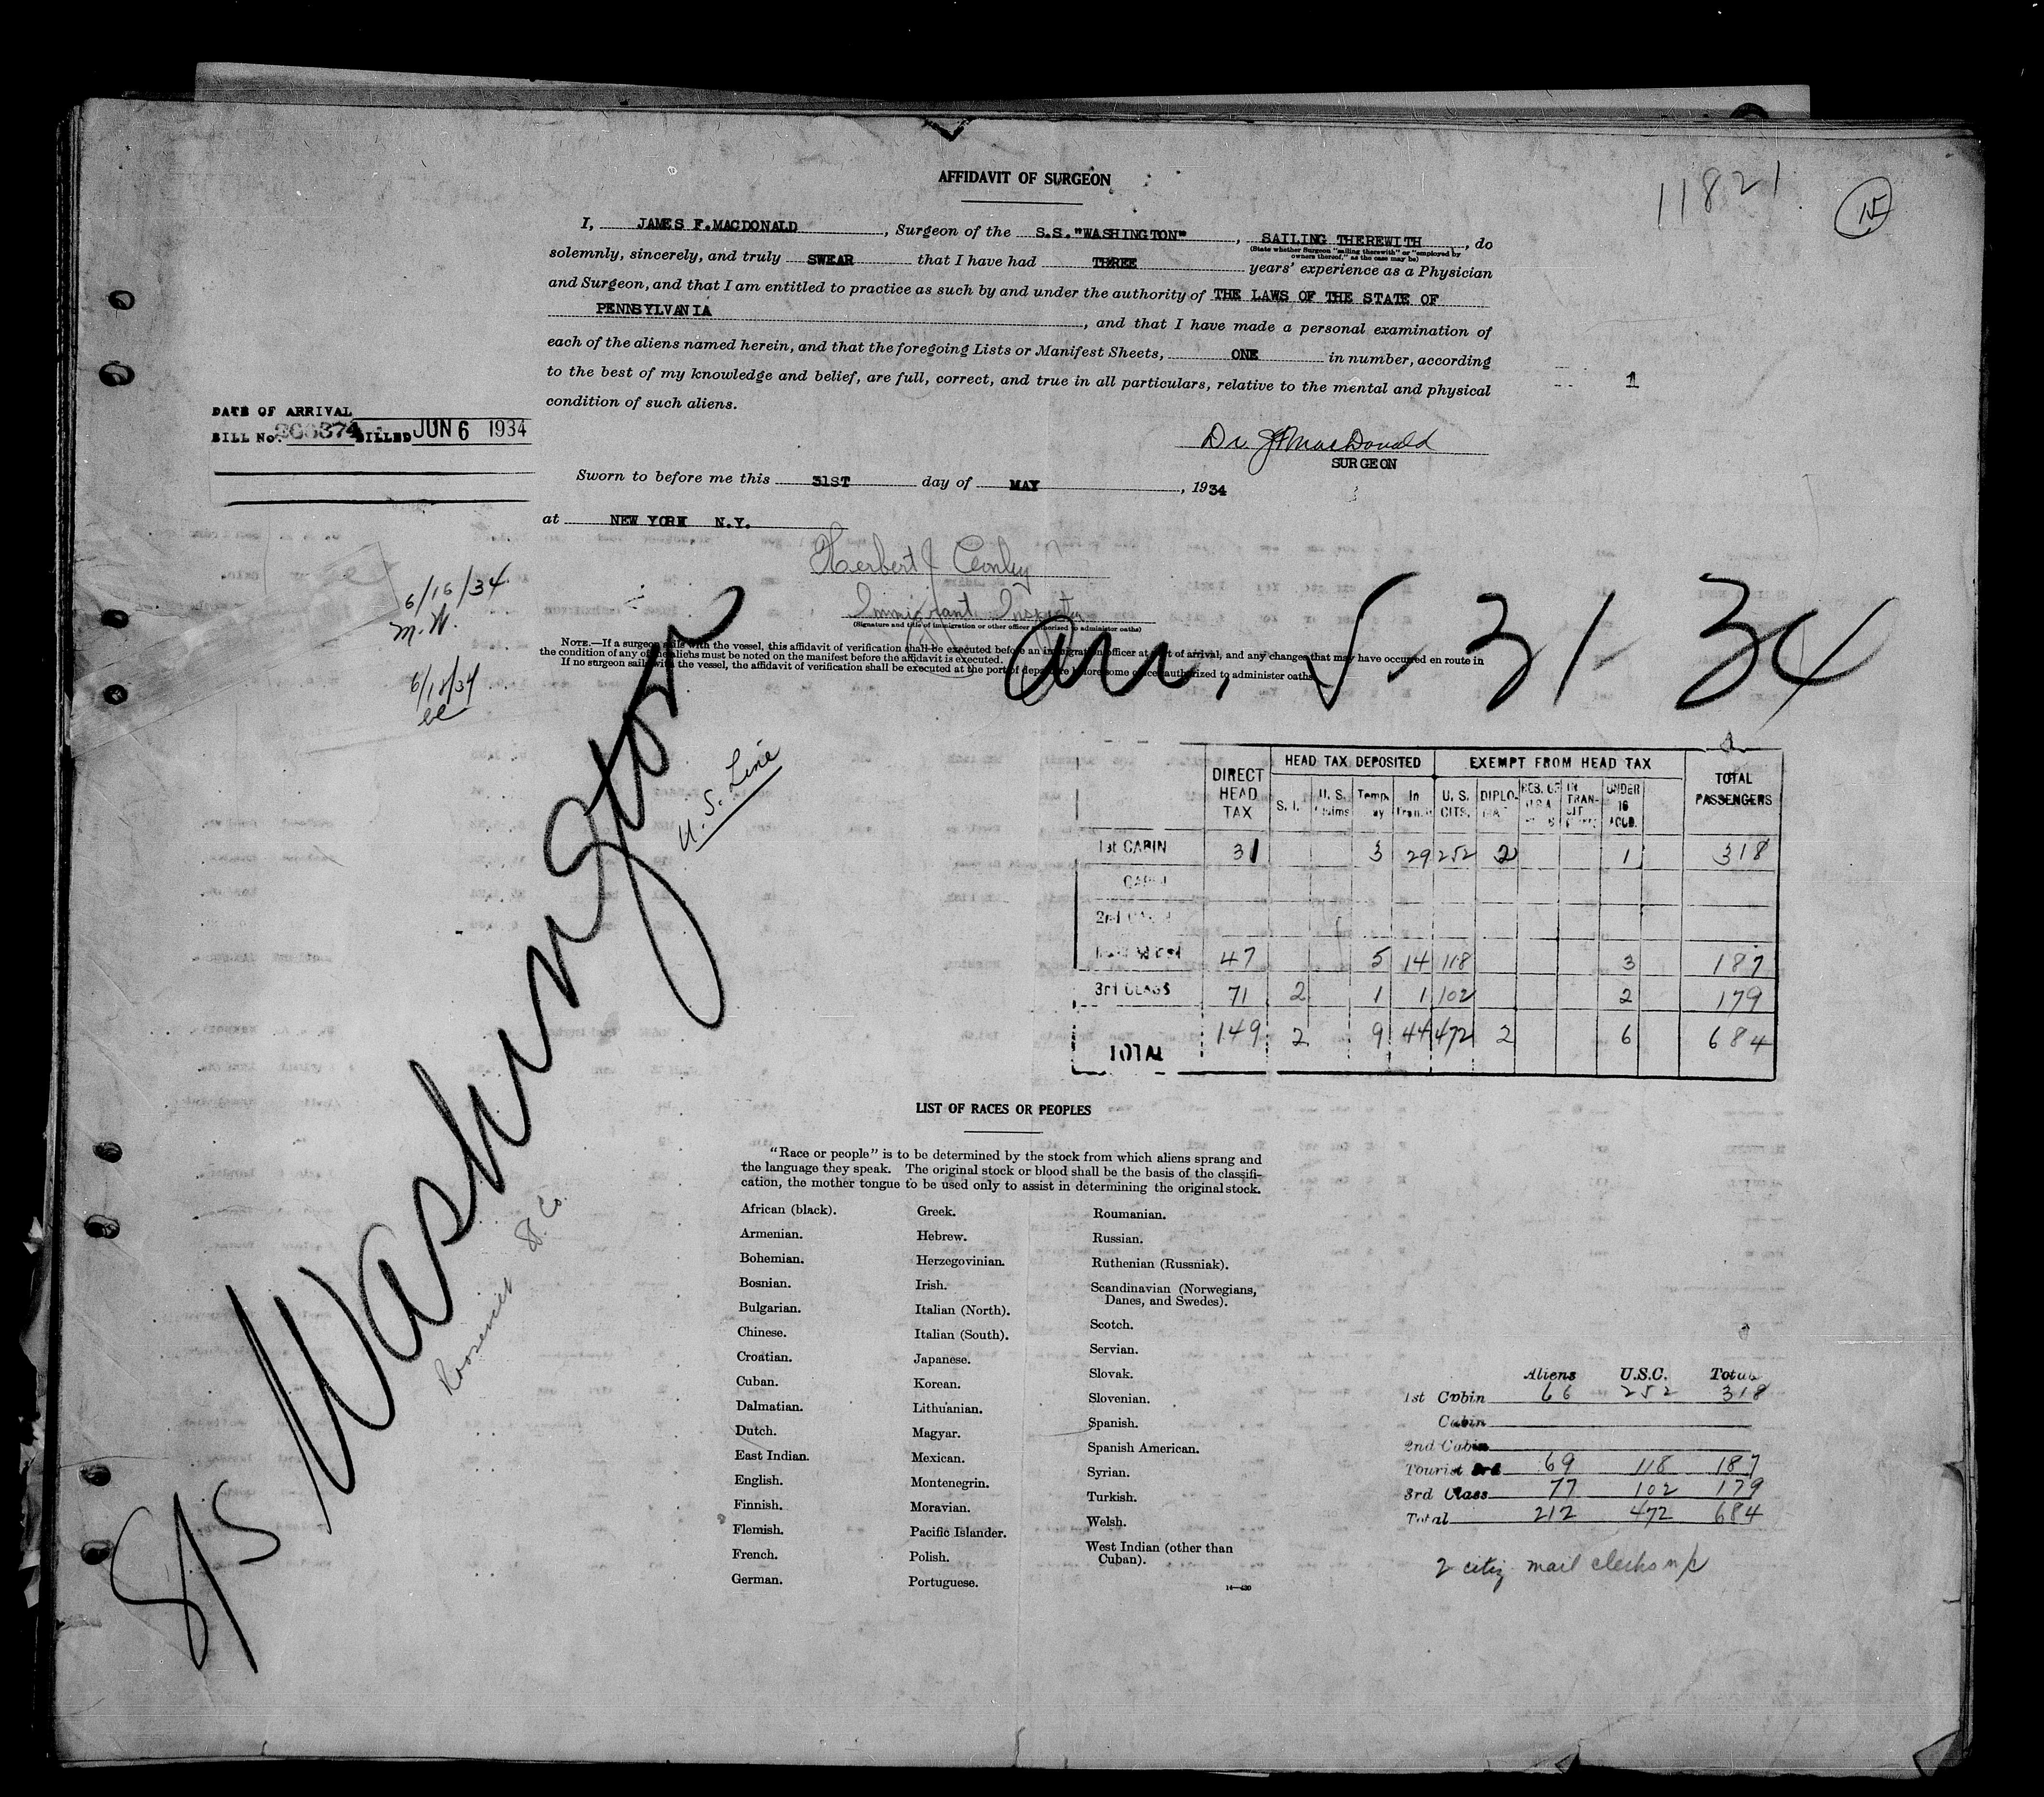 AFFIDAVIT OF SURGEON
11821
15
I, JAMES F. MACDONALD, Surgeon of the S.S. "WASHINGTON", SAILING THEREWITH, do
(State whether Surgeon "sailing therewith" or "employed by
owners thereof," as the case may be)
solemnly, sincerely, and truly SWEAR that I have had THREE years' experience as a Physician
and Surgeon, and that I am entitled to practice as such by and under the authority of THE LAWS OF THE STATE OF
PENNSYLVANIA, and that I have made a personal examination of
each of the aliens named herein, and that the foregoing Lists or Manifest Sheets, ONE in number, according
to the best of my knowledge and belief, are full, correct, and true in all particulars, relative to the mental and physical
condition of such aliens.
1
DATE OF ARRIVAL
BILL No. BILLED JUN 6 1934
Dr. JF MacDonald
SURGEON
Sworn to before me this 31ST day of MAY, 1934
at NEW YORK N.Y.
Herbert J Conley
Immigrant Inspector
(Signature and title of immigration or other officer authorized to administer oaths)
6/16/34
M.W.
6/18/34
NOTE.—If a surgeon sails with the vessel, this affidavit of verification shall be executed before an immigration officer at port of arrival, and any changes that may have occurred en route in
the condition of any of the aliens must be noted on the manifest before the affidavit is executed.
If no surgeon sails with the vessel, the affidavit of verification shall be executed at the port of departure before some officer authorized to administer oaths.
arr, 5-31-34
S/S Washington
U.S. Line
Roosevelt SS. Co.
DIRECT HEAD TAX HEAD TAX DEPOSITED EXEMPT FROM HEAD TAX TOTAL PASSENGERS
S. I. U. S. Temp. In U. S. CITS. DIPLO- RES. OF IN TRAN- SIT UNDER 16 ACCD.
1st CABIN 31 3 29 252 2 1 318
2nd
47 5 14 118 3 187
3rd CLASS 71 2 1 1 102 2 179
TOTAL 149 2 9 44 472 2 6 684
LIST OF RACES OR PEOPLES
"Race or people" is to be determined by the stock from which aliens sprang and
the language they speak. The original stock or blood shall be the basis of the classifi-
cation, the mother tongue to be used only to assist in determining the original stock.
African (black).
Armenian.
Bohemian.
Bosnian.
Bulgarian.
Chinese.
Croatian.
Cuban.
Dalmatian.
Dutch.
East Indian.
English.
Finnish.
Flemish.
French.
German.
Greek.
Hebrew.
Herzegovinian.
Irish.
Italian (North).
Italian (South).
Japanese.
Korean.
Lithuanian.
Magyar.
Mexican.
Montenegrin.
Moravian.
Pacific Islander.
Polish.
Portuguese.
Roumanian.
Russian.
Ruthenian (Russniak).
Scandinavian (Norwegians,
Danes, and Swedes).
Scotch.
Servian.
Slovak.
Slovenian.
Spanish.
Spanish American.
Syrian.
Turkish.
Welsh.
West Indian (other than
Cuban).
14—430
Aliens U.S.C. Total
1st Cabin 66 252 318
Cabin
2nd Cabin
Tourist 3rd 69 118 187
3rd Class 77 102 179
Total 212 472 684
2 citiz mail clerks